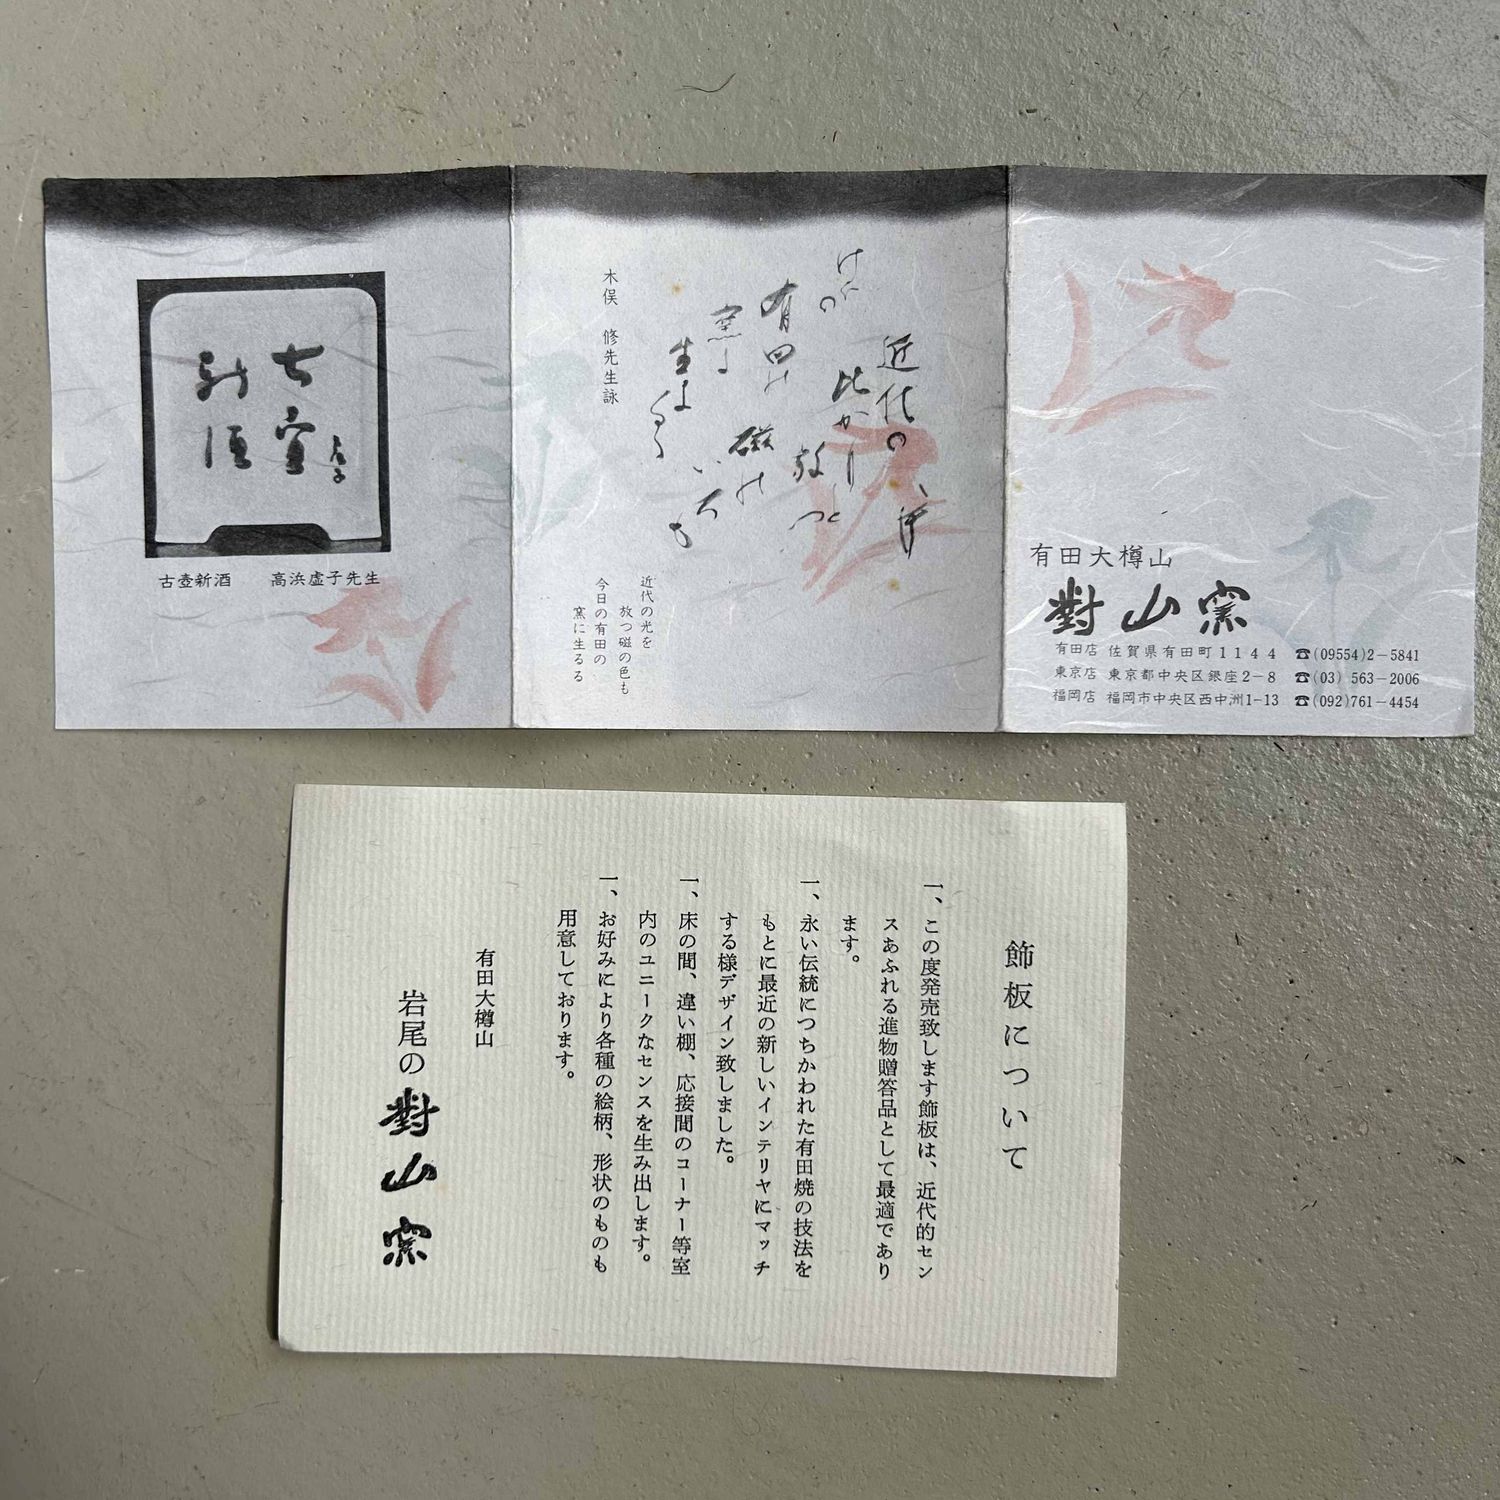 有田大樽山
對山窯
有田店 佐賀県有田町1144 ☎(09554)2-5841
東京店 東京都中央区銀座2-8 ☎(03)563-2006
福岡店 福岡市中央区西中洲1-13 ☎(092)761-4454
近代の
有田の
磁の
木俣 修先生詠
近代の光を
放つ磁の色も
今日の有田の
窯に生るる
古壺
新酒
虚子
古壺新酒 高浜虚子先生
飾板について
一、この度発売致します飾板は、近代的セン
スあふれる進物贈答品として最適であり
ます。
一、永い伝統につちかわれた有田焼の技法を
もとに最近の新しいインテリヤにマッチ
する様デザイン致しました。
一、床の間、違い棚、応接間のコーナー等室
内のユニークなセンスを生み出します。
一、お好みにより各種の絵柄、形状のものも
用意しております。
有田大樽山
岩尾の對山窯